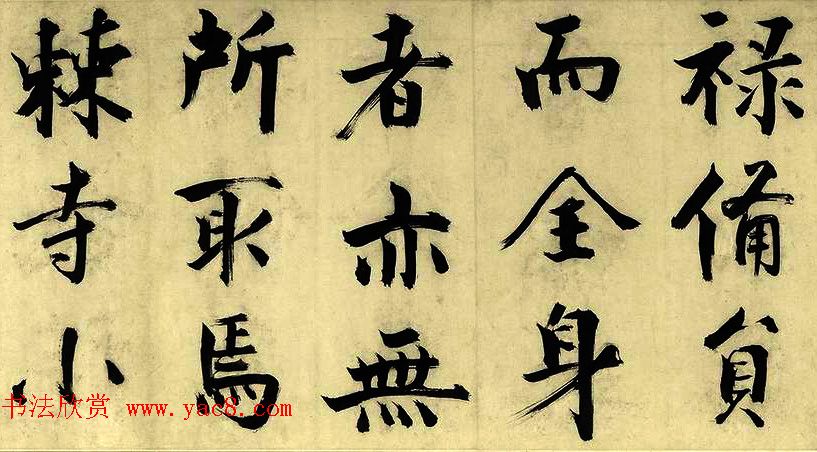 禄備員
而全身
者亦無
所取焉
棘寺小
书法欣赏 www.yac8.com